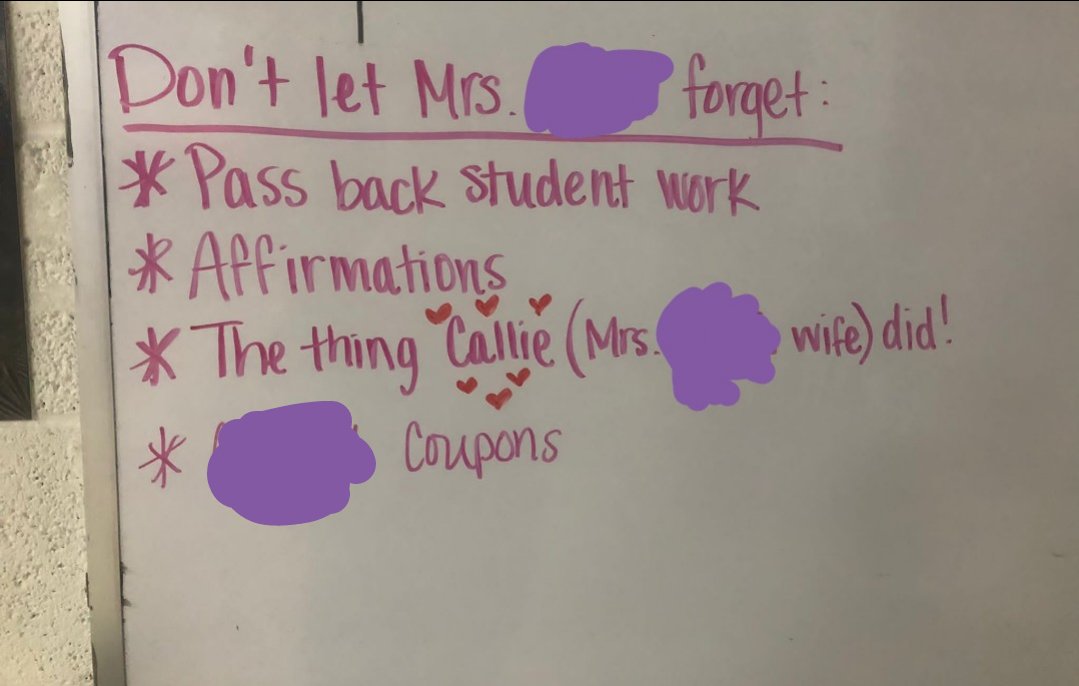 Don't let Mrs. forget:
* Pass back student work
* Affirmations
* The thing Callie (Mrs. wife) did!
* Coupons